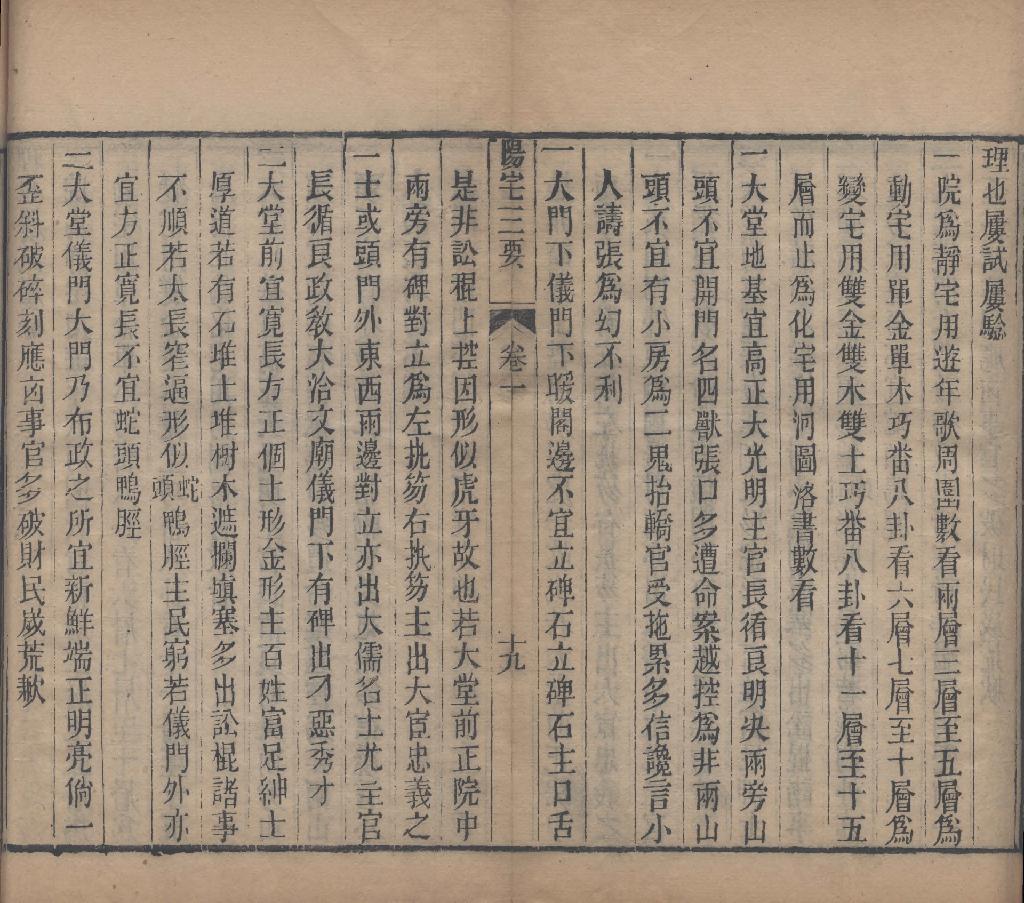 理也屢試屢驗
一院爲靜宅用遊年歌周圍數看兩層三層至五層爲
動宅用單金單木巧畨八卦看六層七層至十層爲
變宅用雙金雙木雙土巧畨八卦看十一層至十五
層而止爲化宅用河圖洛書數看
一大堂地基宜高正大光明主官長循良明决兩旁山
頭不宜開門名四獸張口多遭命案越控爲非兩山
頭不宜有小房爲二鬼抬轎官受拖累多信讒言小
人譸張爲幻不利
一大門下儀門下暖閣邊不宜立碑石立碑石主口舌
陽宅三要 卷一 十九
是非訟棍上控因形似虎牙故也若大堂前正院中
兩旁有碑對立爲左执笏右执笏主出大宦忠義之
士或頭門外東西兩邊對立亦出大儒名士尤主官
長循良政敎大洽文廟儀門下有碑出刁惡秀才
一大堂前宜寛長方正個土形金形主百姓富足紳士
厚道若有石堆土堆樹木遮攔塡塞多出訟棍諸事
不順若太長窄逼形似蛇頭鴨脛主民窮若儀門外亦
宜方正寛長不宜蛇頭鴨脛
一大堂儀門大門乃布政之所宜新鮮端正明亮倘一
歪斜破碎刻應凶事官多破財民歲荒歉